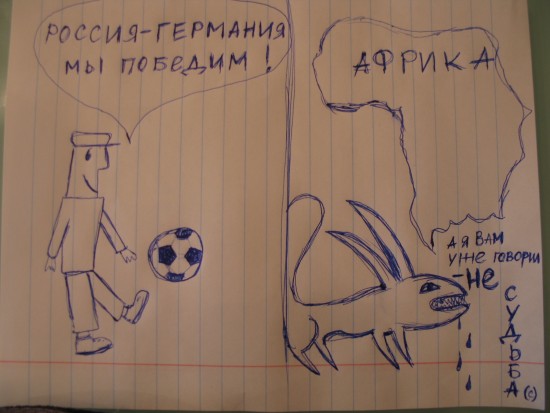 РОССИЯ-ГЕРМАНИЯ
МЫ ПОБЕДИМ!
АФРИКА
А Я ВАМ
УЖЕ ГОВОРИЛ
-НЕ
СУДЬБА (с)